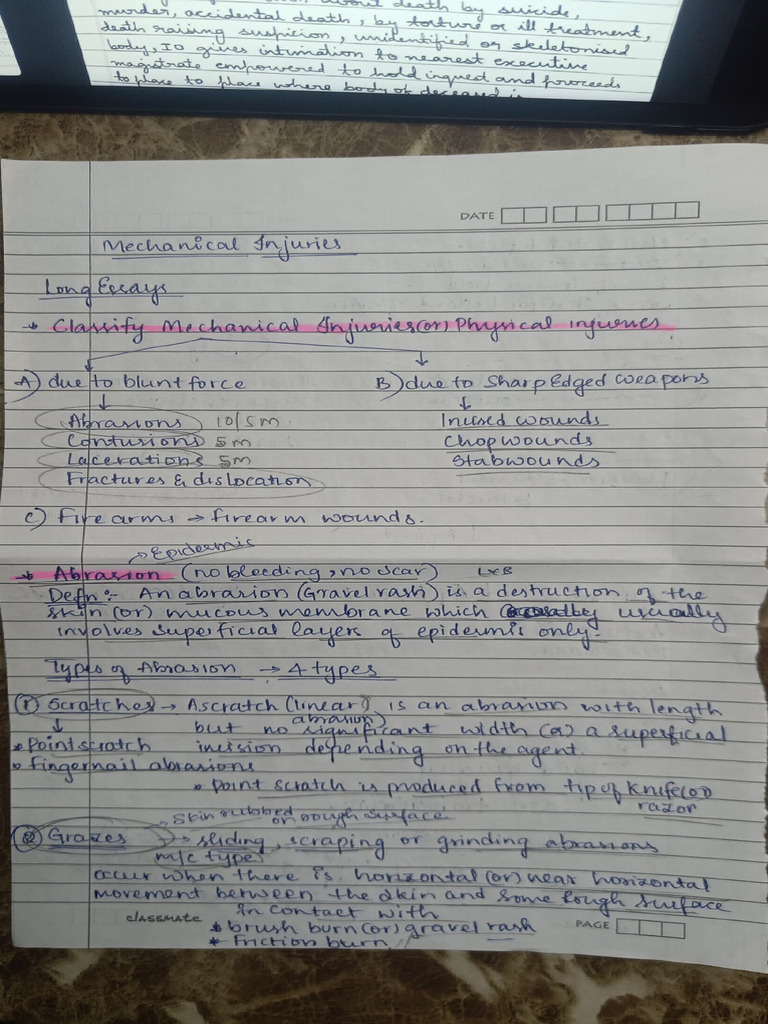 about death by suicide,
murder, accidental death, by torture or ill treatment,
death raising suspicion, unidentified or skeletonised
body, IO gives intimation to nearest executive
magistrate empowered to hold inqest and proceeds
to place to place where body of deceased is
DATE
Mechanical Injuries
Long Essays
Classify Mechanical Injuries(or) Physical injuries
A) due to blunt force B) due to Sharp Edged weapons
Abrasions 10/5m Incised wounds
Contusions 5m Chop wounds
Lacerations 5m Stabwounds
Fractures & dislocation
C) Fire arms → firearm wounds.
→ Epidermis
Abrasion (no bleeding, no scar) LxB
Defn:- An abrasion (Gravel rash) is a destruction of the
skin (or) mucous membrane which usually
involves superficial layers of epidermis only.
Types of Abrasion → 4 types
① Scratches → A scratch (linear abrasion) is an abrasion with length
but no significant width (or) a superficial
* Point scratch incision depending on the agent.
* fingernail abrasions
* Point scratch is produced from tip of knife (or)
razor
→ Skin rubbed on rough surface
② Grazes → sliding, scraping or grinding abrasions
m/c type
occur when there is horizontal (or) near horizontal
movement between the skin and some rough surface
in contact with
classmate PAGE
* brush burn (or) gravel rash
* Friction burn